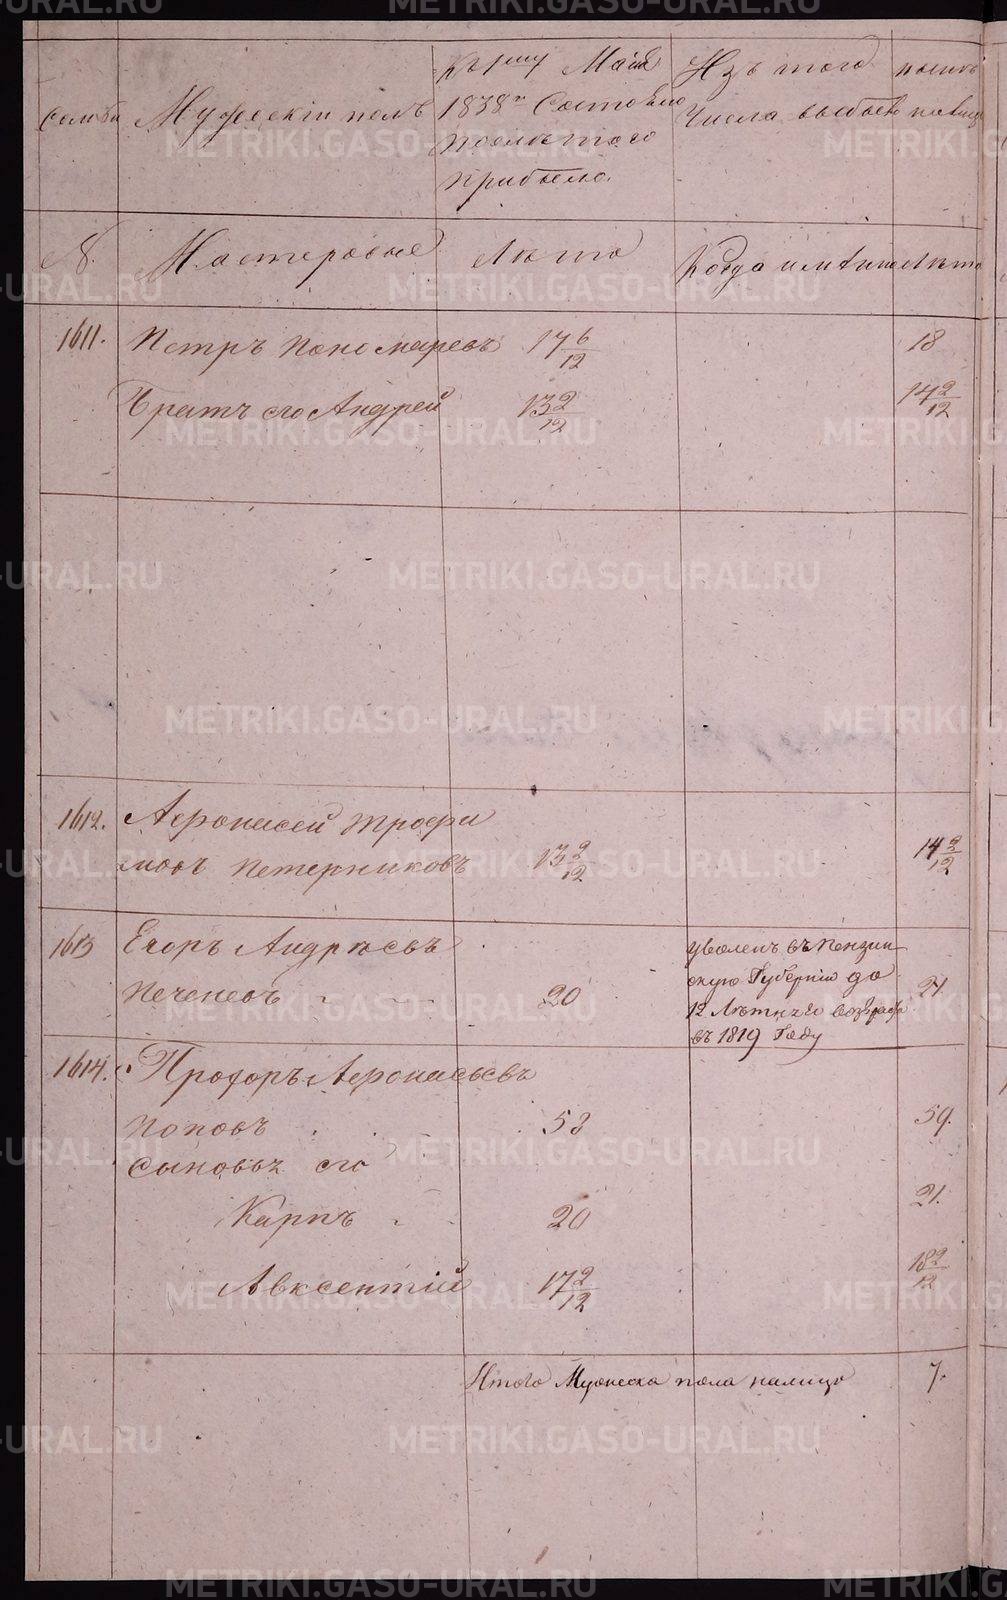 METRIKI.GASO-URAL.RU
семьи
Мужескiй полъ
Къ 1му Маiя
1838го Состояло
после того
прибыло.
Изъ того
Числа выбыло
ныне
налицо
№.
Мастеровые
Лѣта
Когда и имянно
Лѣта
1611.
Петръ Пономаревъ
17 6/12
18
Братъ его Андрей
13 2/12
14 2/12
1612.
Афонасей Трофи
мовъ Петерниковъ
13 2/12
14 2/12
1613
Егоръ Андрѣевъ
Печеневъ
20
уволенъ въ Пензин
скую Губернiю до
12 Лѣтняго возраста
въ 1819 Году
21
1614.
Прохоръ Афонасьевъ
Поповъ
58
59.
Сыновья его
Карпъ
20
21.
Авксентiй
17 2/12
18 2/12
Итого Мужеска пола налицо
7.